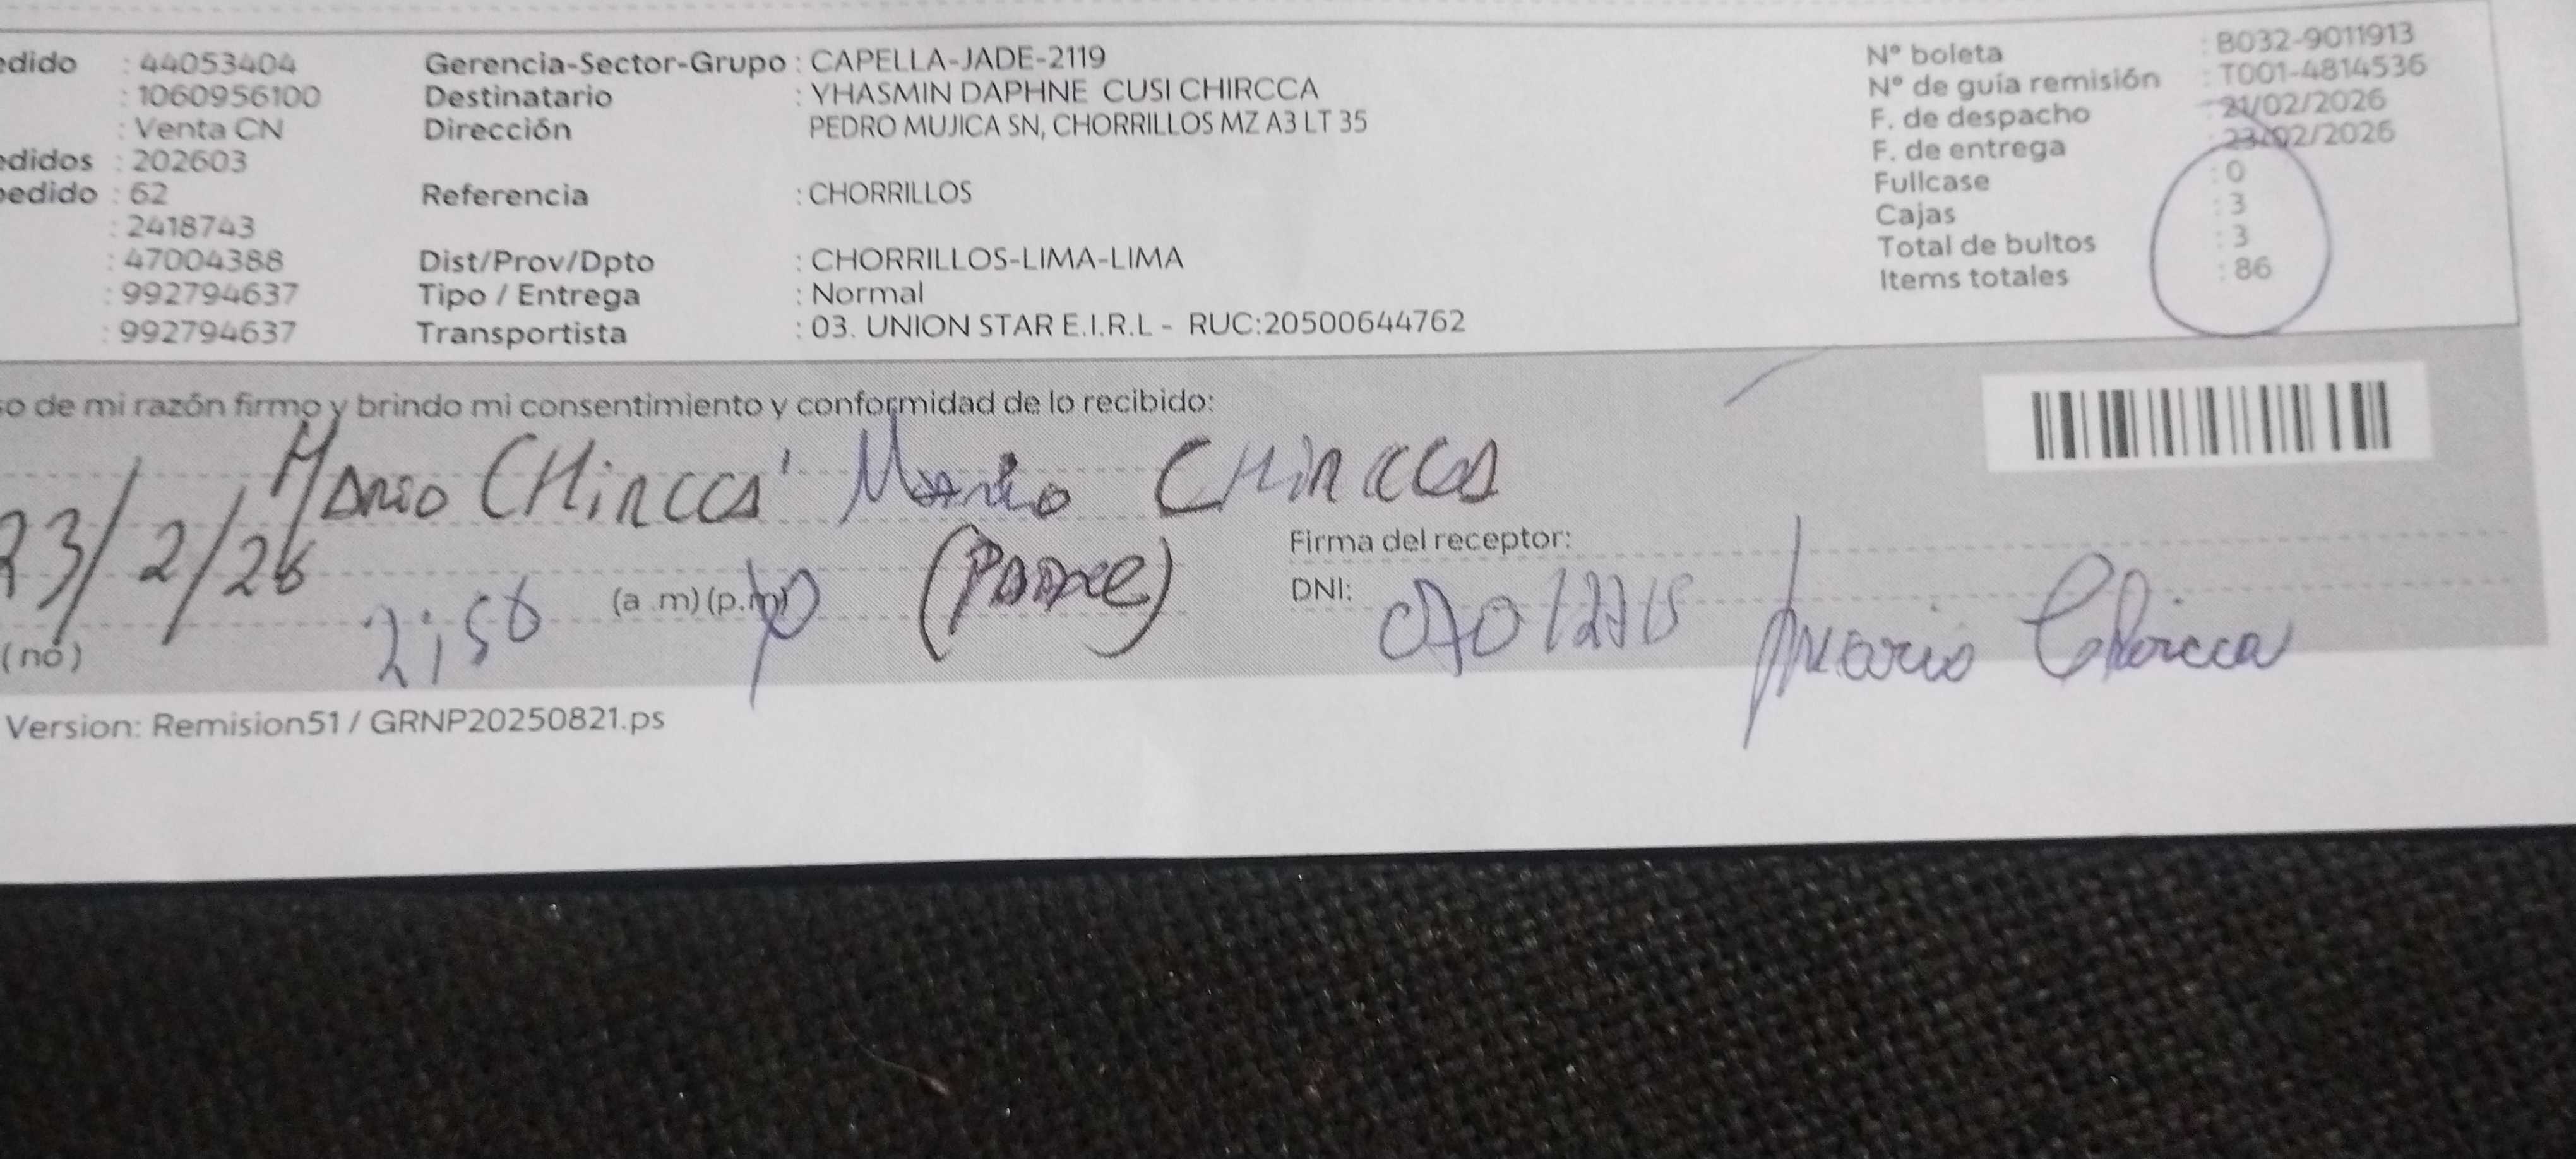 edido : 44053404
: 1060956100
: Venta CN
edidos : 202603
pedido : 62
: 2418743
: 47004388
: 992794637
: 992794637
Gerencia-Sector-Grupo : CAPELLA-JADE-2119
Destinatario : YHASMIN DAPHNE CUSI CHIRCCA
Dirección PEDRO MUJICA SN, CHORRILLOS MZ A3 LT 35
Referencia : CHORRILLOS
Dist/Prov/Dpto : CHORRILLOS-LIMA-LIMA
Tipo / Entrega : Normal
Transportista : 03. UNION STAR E.I.R.L - RUC:20500644762
N° boleta : B032-9011913
N° de guía remisión : T001-4814536
F. de despacho : 21/02/2026
F. de entrega : 23/02/2026
Fullcase : 0
Cajas : 3
Total de bultos : 3
Items totales : 86
so de mi razón firmo y brindo mi consentimiento y conformidad de lo recibido:
Mario CHircca Mario CHircca
23/2/26
2:50 (a .m) (p.m) p (Padre)
Firma del receptor:
DNI:
Mario Chircca
(no)
Version: Remision51 / GRNP20250821.ps